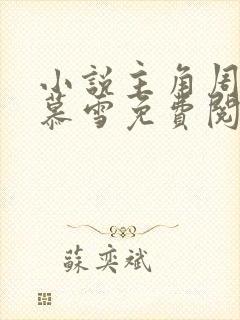 小說主角周
慕雪免費閱
蘇奕斌